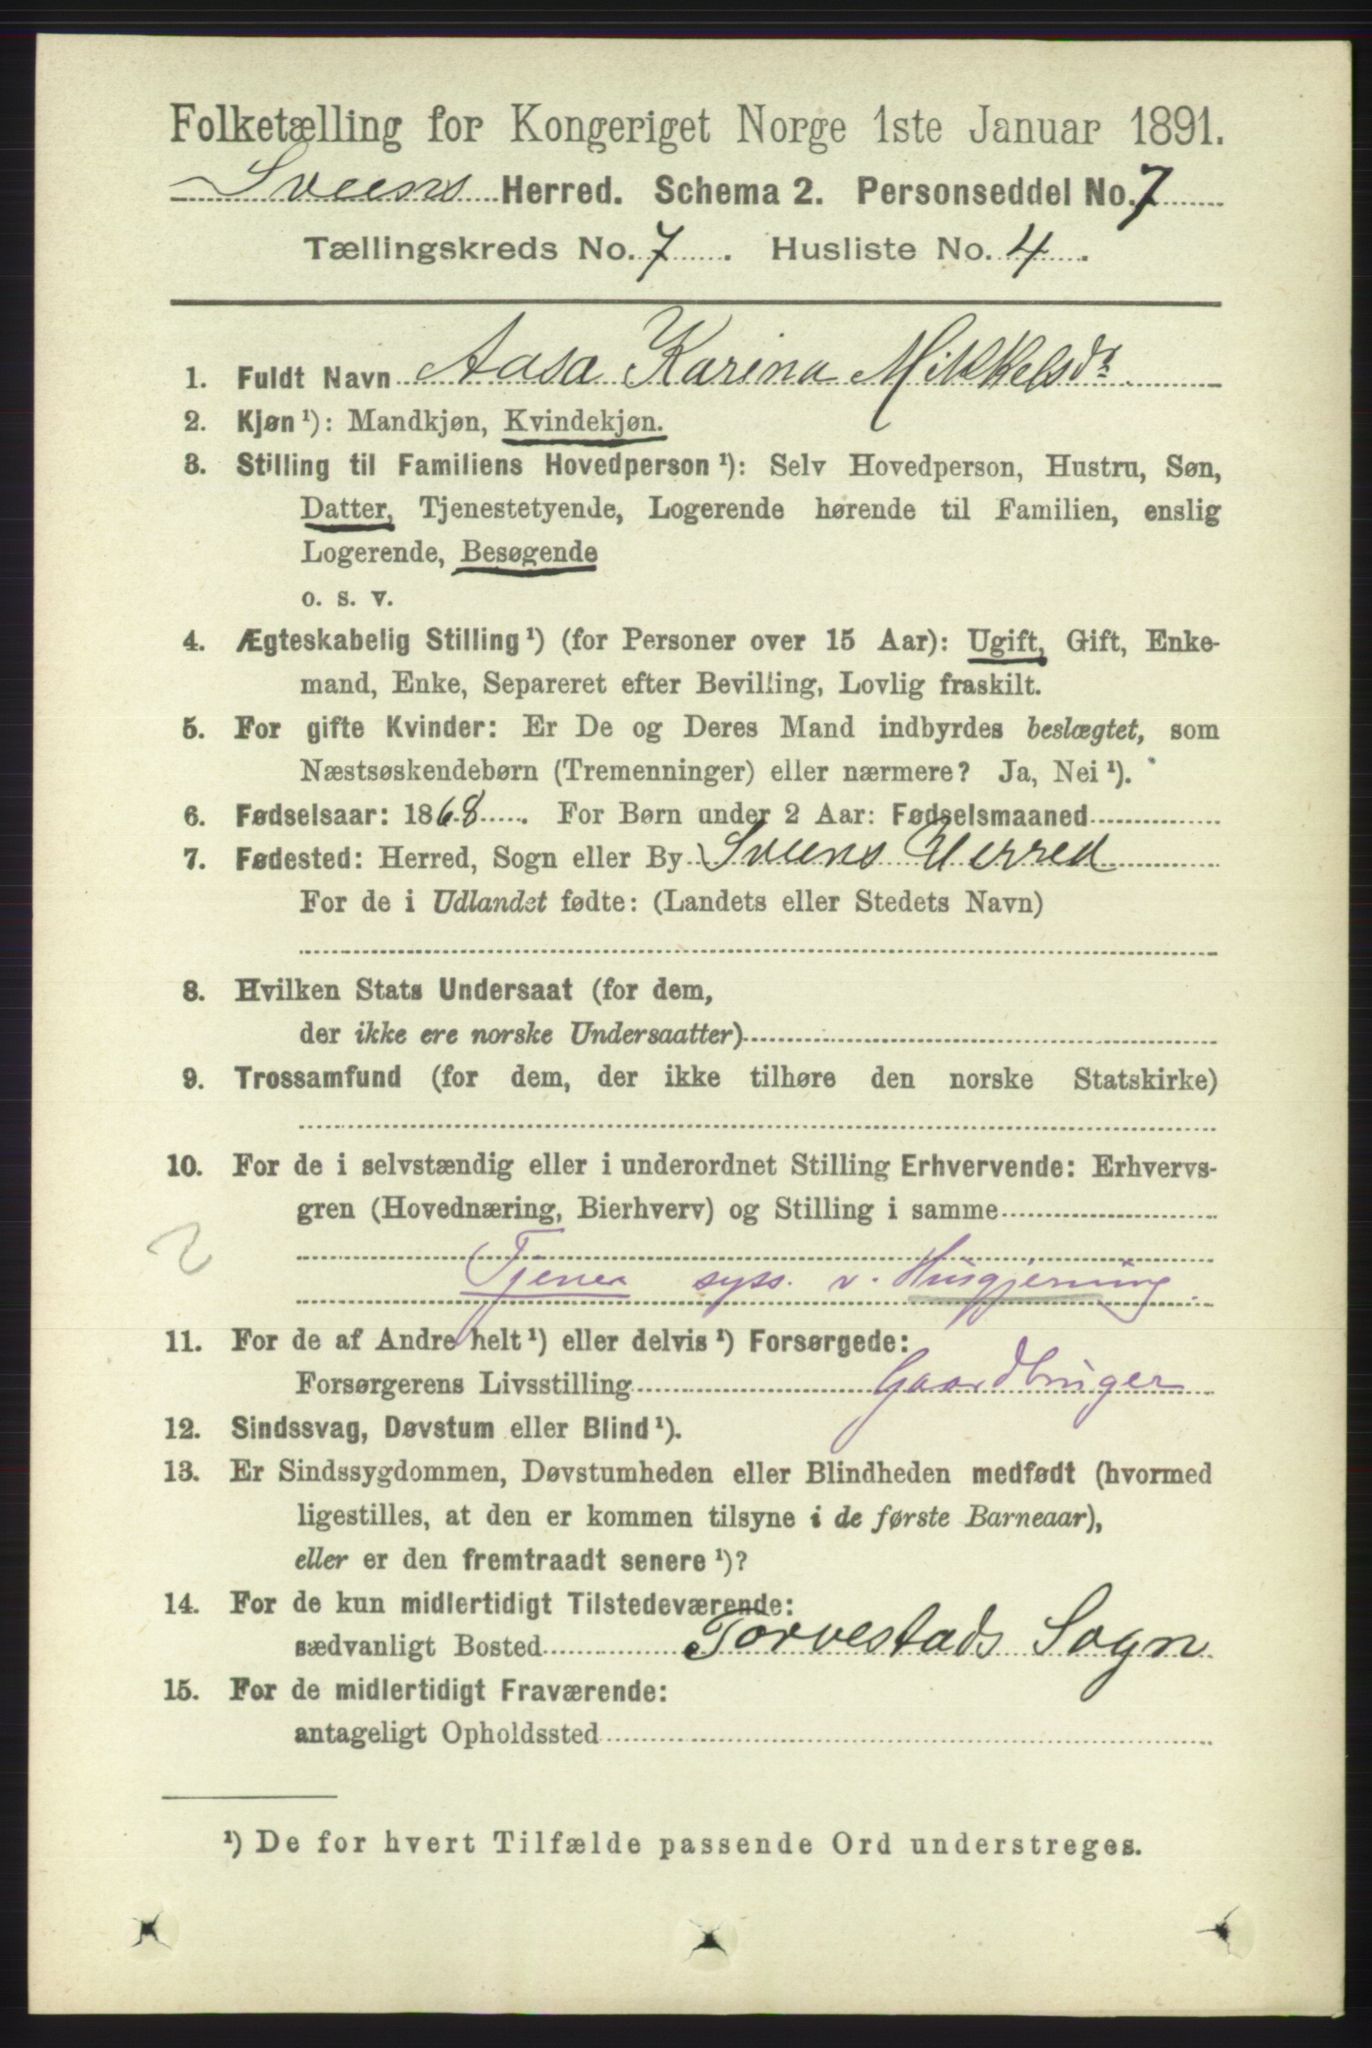 Folketælling for Kongeriget Norge 1ste Januar 1891.
Sveens Herred. Schema 2. Personseddel No. 7
Tællingskreds No. 7. Husliste No. 4.
1. Fuldt Navn Aasa Karina Mikkelsdr
2. Kjøn¹): Mandkjøn, Kvindekjøn.
3. Stilling til Familiens Hovedperson¹): Selv Hovedperson, Hustru, Søn,
Datter, Tjenestetyende, Logerende hørende til Familien, enslig
Logerende, Besøgende
o. s. v.
4. Ægteskabelig Stilling¹) (for Personer over 15 Aar): Ugift, Gift, Enke-
mand, Enke, Separeret efter Bevilling, Lovlig fraskilt.
5. For gifte Kvinder: Er De og Deres Mand indbyrdes beslægtet, som
Næstsøskendebørn (Tremenninger) eller nærmere? Ja, Nei¹).
6. Fødselsaar: 1868. For Børn under 2 Aar: Fødselsmaaned
7. Fødested: Herred, Sogn eller By Sveens Herred
For de i Udlandet fødte: (Landets eller Stedets Navn)
8. Hvilken Stats Undersaat (for dem,
der ikke ere norske Undersaatter)
9. Trossamfund (for dem, der ikke tilhøre den norske Statskirke)
10. For de i selvstændig eller i underordnet Stilling Erhvervende: Erhvervs-
gren (Hovednæring, Bierhverv) og Stilling i samme
2
Tjener syss. v. Husgjerning.
11. For de af Andre helt¹) eller delvis¹) Forsørgede:
Forsørgerens Livsstilling Gaardbruger
12. Sindssvag, Døvstum eller Blind¹).
13. Er Sindssygdommen, Døvstumheden eller Blindheden medfødt (hvormed
ligestilles, at den er kommen tilsyne i de første Barneaar),
eller er den fremtraadt senere¹)?
14. For de kun midlertidigt Tilstedeværende:
sædvanligt Bosted Torvestads Sogn
15. For de midlertidigt Fraværende:
antageligt Opholdssted
¹) De for hvert Tilfælde passende Ord understreges.